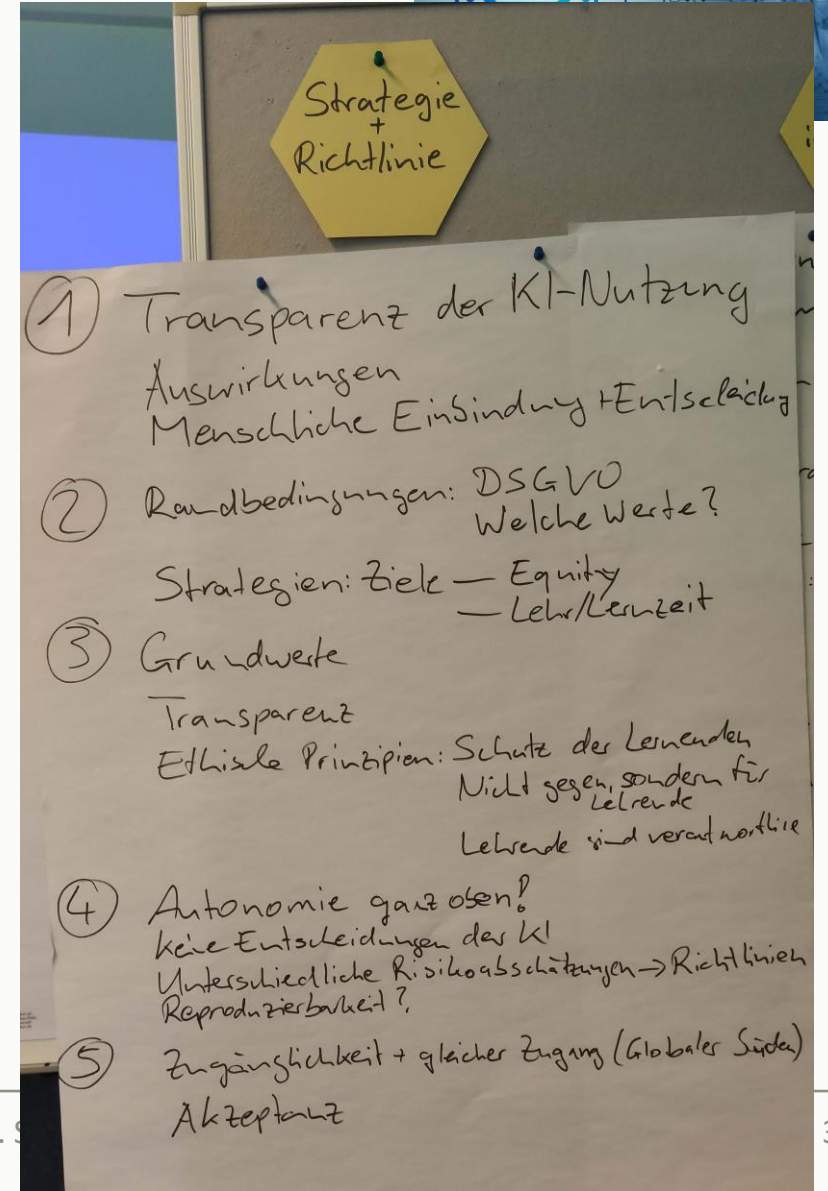 Strategie
+
Richtlinie
① Transparenz der KI-Nutzung
Auswirkungen
Menschliche Einbindung + Entscheidung
② Randbedingungen: DSGVO
Welche Werte?
Strategien: Ziele — Equity
— Lehr/Lernzeit
③ Grundwerte
Transparenz
Ethische Prinzipien: Schutz der Lernenden
Nicht gegen, sondern für
Lehrende
Lehrende sind verantwortlich
④ Autonomie ganz oben!
keine Entscheidungen der KI
Unterschiedliche Risikoabschätzungen → Richtlinien
Reproduzierbarkeit?
⑤ Zugänglichkeit + gleicher Zugang (Globaler Süden)
Akzeptanz